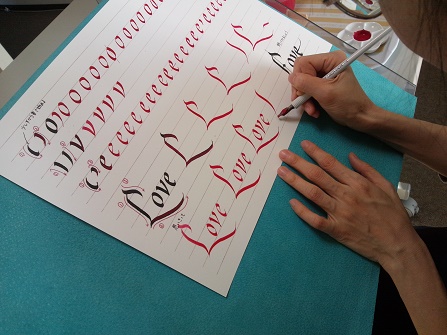 o o o o o o o o o o o
v v v v v v
e e e e e e e e e e e e e e e e e e e e
Love L L L L
Love Love Love Love